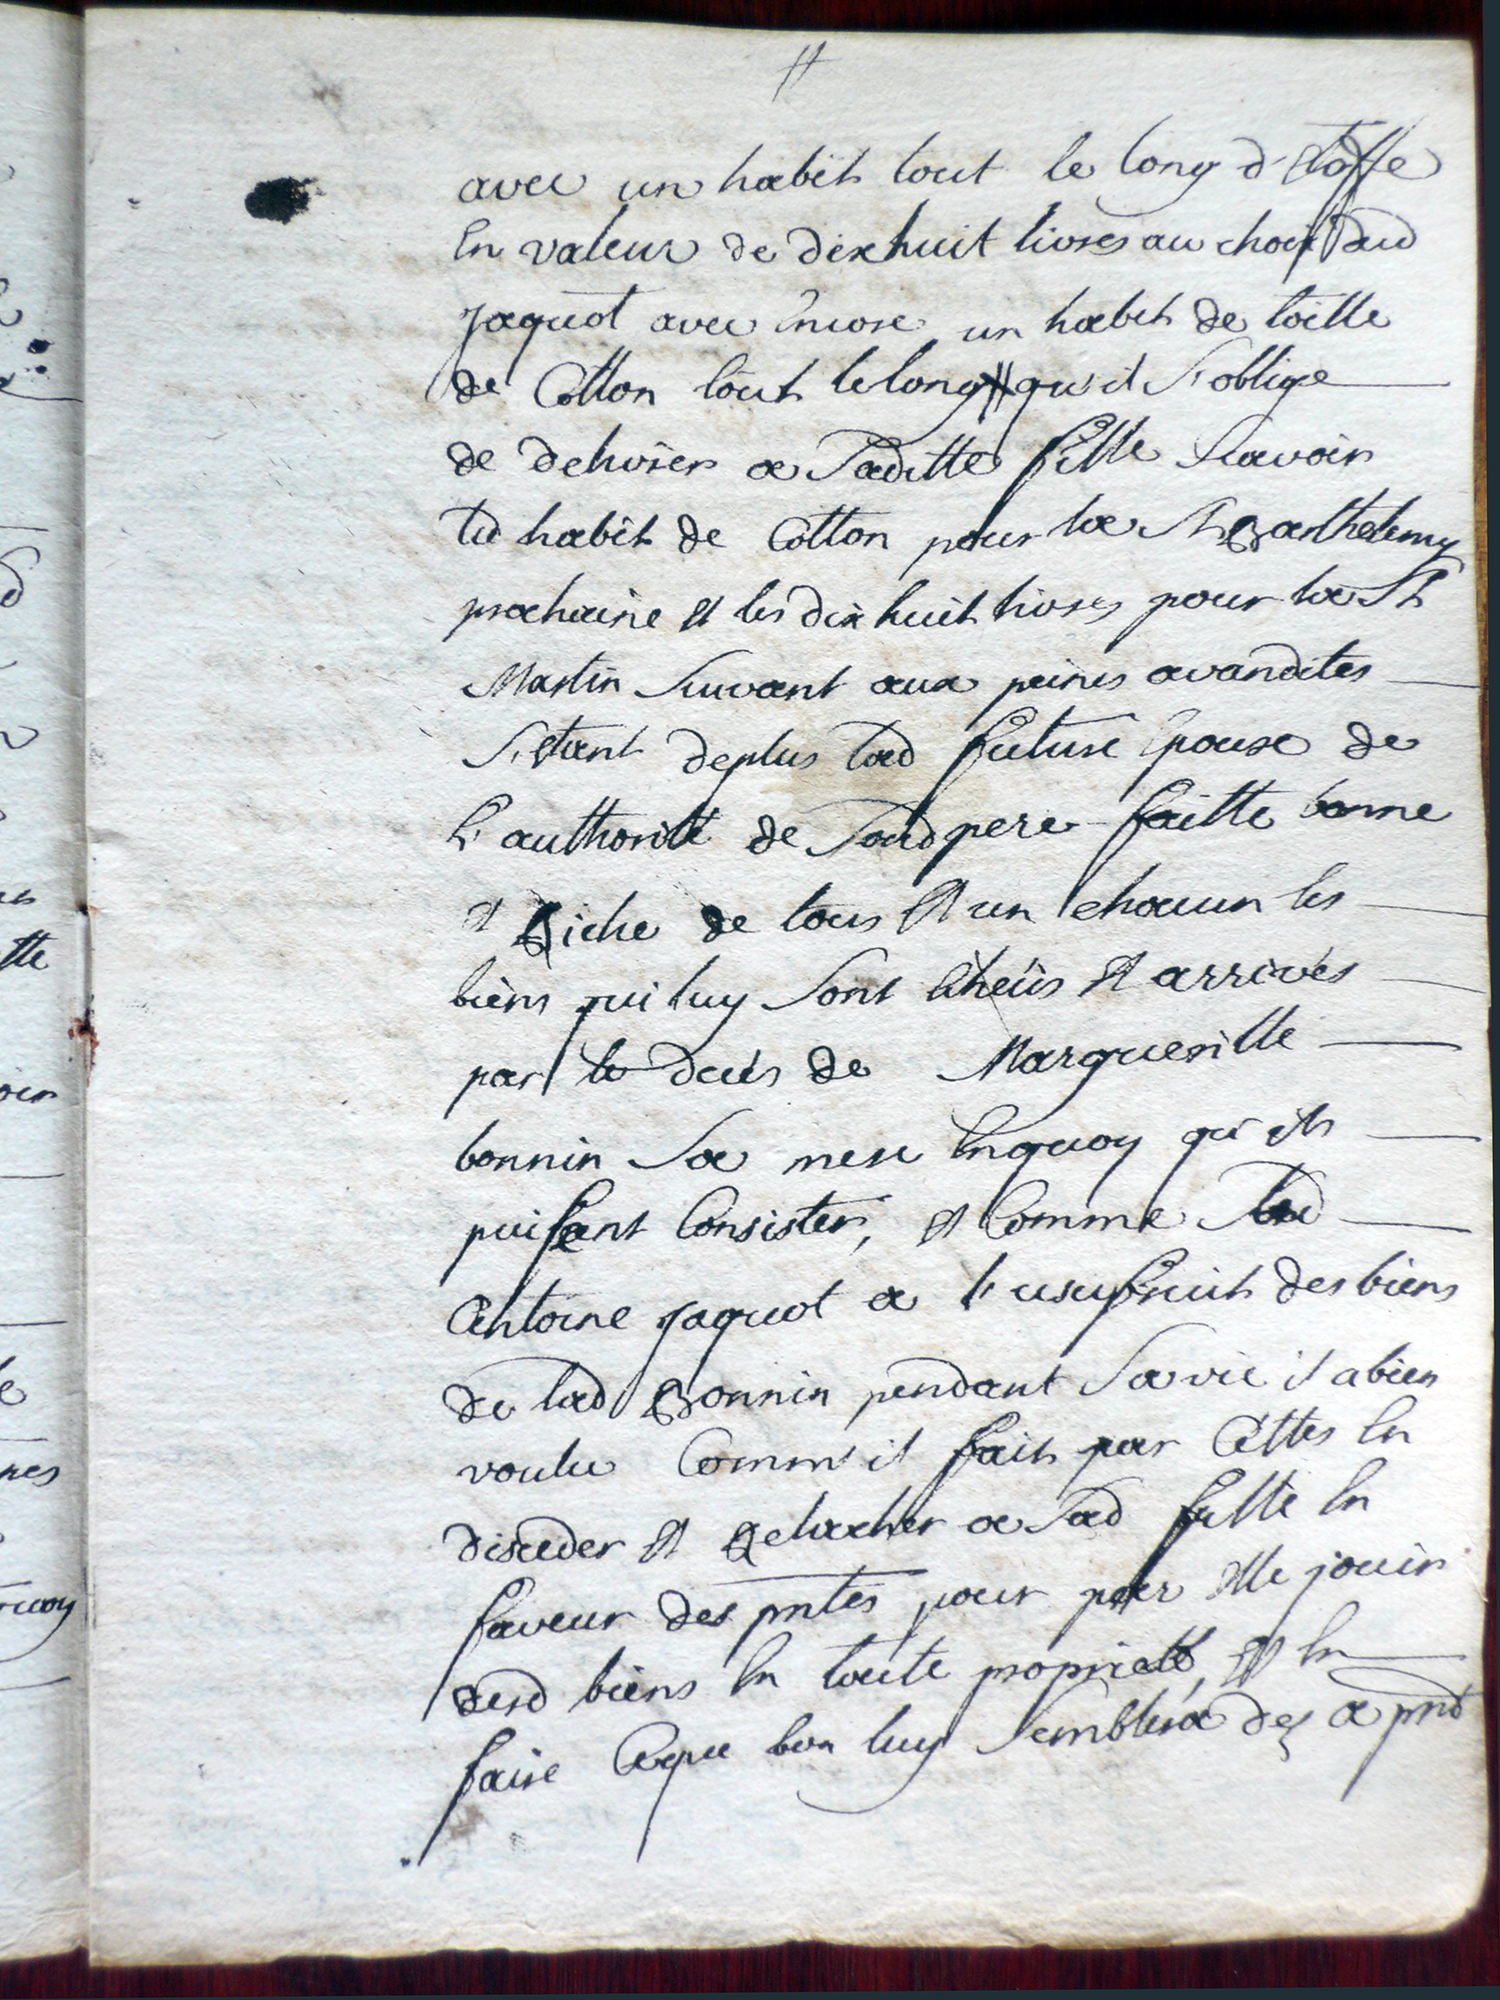 avec un habit tout le long d'etoffe
en valeur de dixhuit livres au choix dud
jaquot avec encore un habit de toille
de Cotton tout le long # qu'il s'oblige
de delivrer a saditte fille scavoir
led habit de Cotton pour la St Barthelemy
prochaine et les dix huit livres pour la St
Martin suivant aux peines avandites
s'etant deplus lad future epouse de
l'authorité de sond pere faitte bonne
et Riche de tous et un chacun les
biens qui luy sont echeüs et arrivés
par le decés de Margueritte
bonnin sa mere enquoy qu'ils
puissent Consister, et Comme led
Antoine jaquot a l'usufruit des biens
de lad Bonnin pendant sa vie il a bien
voulu Comm'il fait par Cettes en
disceder et Relacher a sad fille en
faveur des pntes pour par elle jouir
desd biens en toute proprieté, et en
faire Ceque bon luy semblera des a pnt